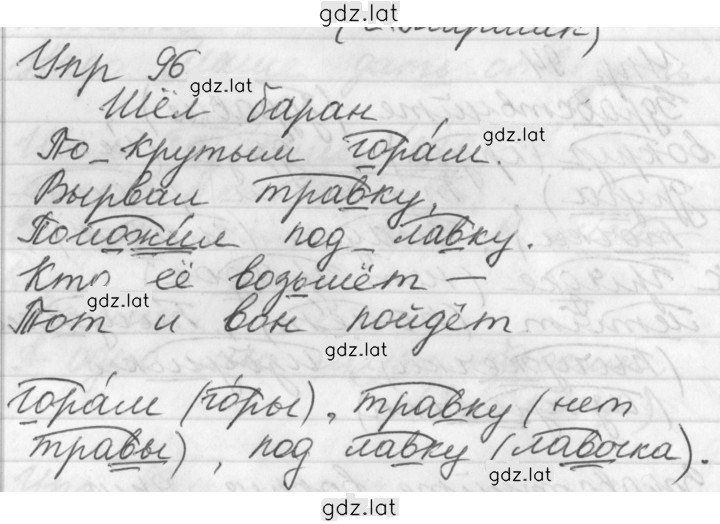 gdz.lat
Упр 96
gdz.lat
Шёл баран
gdz.lat
По крутым гора́м.
Вырвал травку,
Положил под лавку.
Кто её возьмёт —
gdz.lat
Тот и вон пойдёт
gdz.lat
гора́м (го́ры), травку (нет
травы), под лавку (лавочка).
gdz.lat
gdz.lat